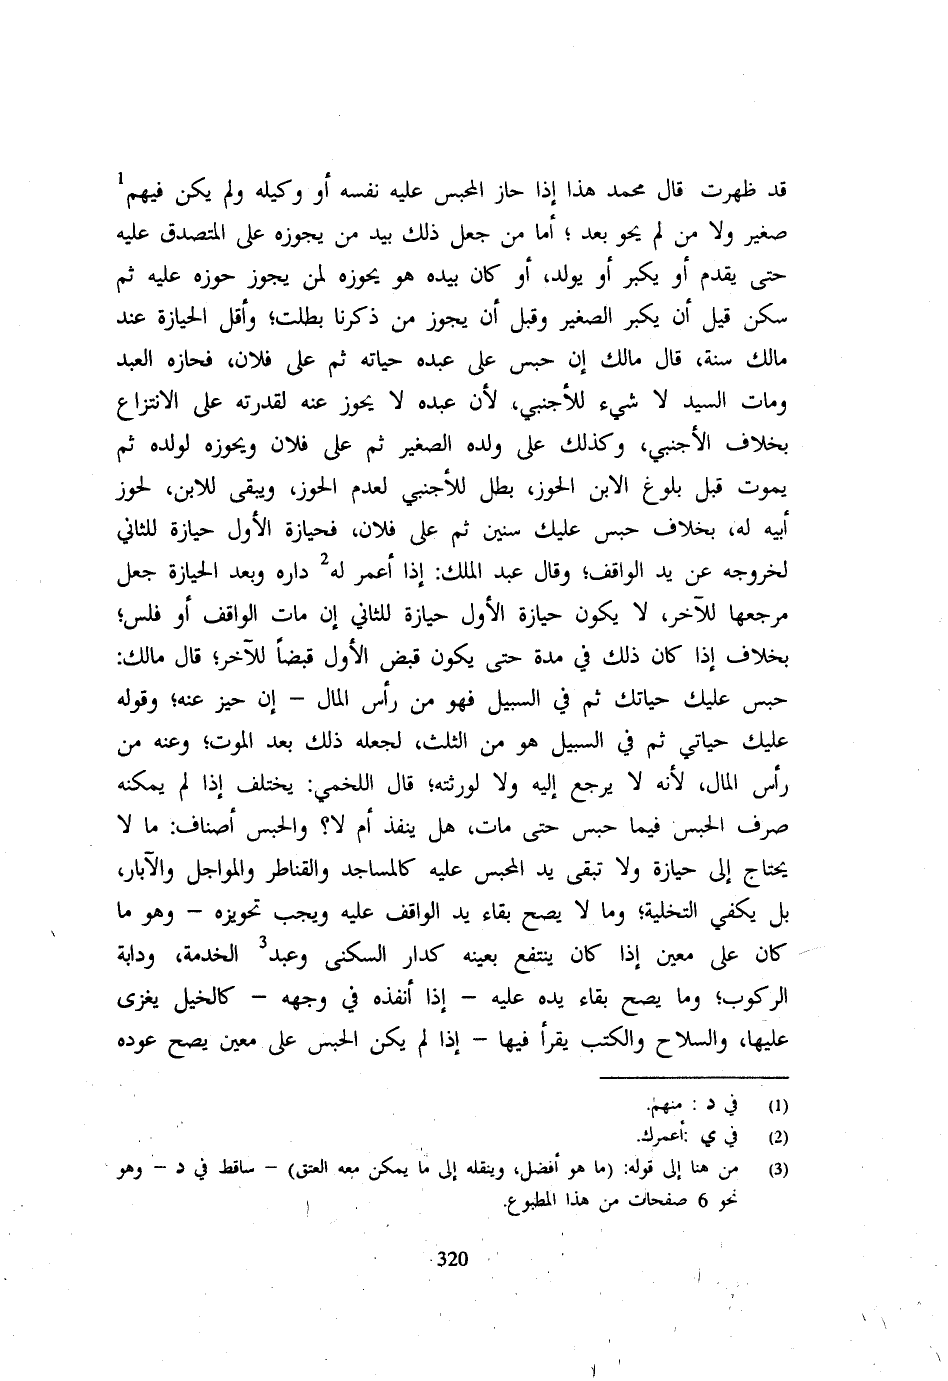 قد ظهرت قال محمد هذا إذا حاز المحبس عليه نفسه أو وكيله ولم يكن فيهم1
صغير ولا من لم يحو بعد ؛ أما من جعل ذلك بيد من يجوزه على المتصدق عليه
حتى يقدم أو يكبر أو يولد، أو كان بيده هو يحوزه لمن يجوز حوزه عليه ثم
سكن قيل أن يكبر الصغير وقبل أن يجوز من ذكرنا بطلت؛ وأقل الحيازة عند
مالك سنة، قال مالك إن حبس على عبده حياته ثم على فلان، فحازه العبد
ومات السيد لا شيء للأجنبي، لأن عبده لا يحوز عنه لقدرته على الانتزاع
بخلاف الأجنبي، وكذلك على ولده الصغير ثم على فلان ويحوزه لولده ثم
يموت قبل بلوغ الابن الحوز، بطل للأجنبي لعدم الحوز، ويبقى للابن، لحوز
أبيه له، بخلاف حبس عليك سنين ثم على فلان، فحيازة الأول حيازة للثاني
لخروجه عن يد الواقف؛ وقال عبد الملك: إذا أعمر له2 داره وبعد الحيازة جعل
مرجعها للآخر، لا يكون حيازة الأول حيازة للثاني إن مات الواقف أو فلس؛
بخلاف إذا كان ذلك في مدة حتى يكون قبض الأول قبضاً للآخر؛ قال مالك:
حبس عليك حياتك ثم في السبيل فهو من رأس المال – إن حيز عنه؛ وقوله
عليك حياتي ثم في السبيل هو من الثلث، لجعله ذلك بعد الموت؛ وعنه من
رأس المال، لأنه لا يرجع إليه ولا لورثته؛ قال اللخمي: يختلف إذا لم يمكنه
صرف الحبس فيما حبس حتى مات، هل ينفذ أم لا؟ والحبس أصناف: ما لا
يحتاج إلى حيازة ولا تبقى يد المحبس عليه كالمساجد والقناطر والمواجل والآبار،
بل يكفي التخلية؛ وما لا يصح بقاء يد الواقف عليه ويجب تحويزه – وهو ما
كان على معين إذا كان ينتفع بعينه كدار السكنى وعبد3 الخدمة، ودابة
الركوب؛ وما يصح بقاء يده عليه – إذا أنفذه في وجهه – كالخيل يغزى
عليها، والسلاح والكتب يقرأ فيها – إذا لم يكن الحبس على معين يصح عوده
(1) في د : منهم.
(2) في ي :أعمرك.
(3) من هنا إلى قوله: (ما هو أفضل، وينقله إلى ما يمكن معه العتق) – ساقط في د – وهو
نحو 6 صفحات من هذا المطبوع.
320